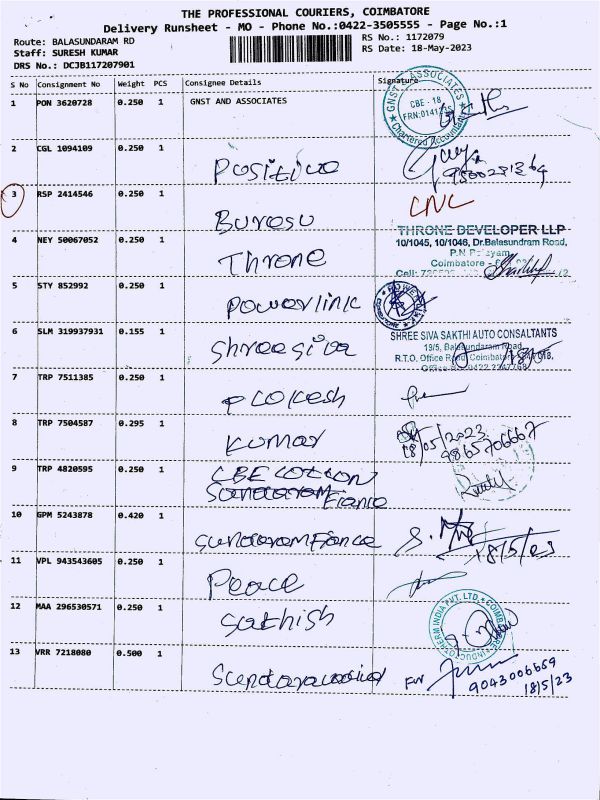 THE PROFESSIONAL COURIERS, COIMBATORE
Delivery Runsheet - MO - Phone No.:0422-3505555 - Page No.:1
Route: BALASUNDARAM RD
RS No.: 1172079
Staff: SURESH KUMAR
RS Date: 18-May-2023
DRS No.: DCJB117207901
S No Consignment No Weight PCS Consignee Details Signature
1 PON 3620728 0.250 1 GNST AND ASSOCIATES
GNST ASSOCIATES
CBE - 18
Chartered Accountants
2 CGL 1094109 0.250 1 Positive
3 RSP 2414546 0.250 1 Buresu CNL
4 NEY 50067052 0.250 1 Throne
THRONE DEVELOPER LLP
10/1045, 10/1046, Dr.Balasundram Road,
Coimbatore -
Cell:
5 STY 852992 0.250 1 Powerlink
6 SLM 319937931 0.155 1 Shreesiva
SHREE SIVA SAKTHI AUTO CONSALTANTS
19/5, Balasundaram Road,
R.T.O. Office Road Coimbatore 018.
7 TRP 7511385 0.250 1
8 TRP 7504587 0.295 1 Kumar
18/05/2023
9865706667
9 TRP 4820595 0.250 1 CBE cotton
Sundaram Fiance
10 GPM 5243878 0.420 1 Sundaram Fiance
18/5/23
11 VPL 943543605 0.250 1 Peace
12 MAA 296530571 0.250 1 Sathish
INDUCTOTHERM INDIA PVT. LTD. COIMBATORE
13 VRR 7218080 0.500 1
For
9043006659
18/5/23